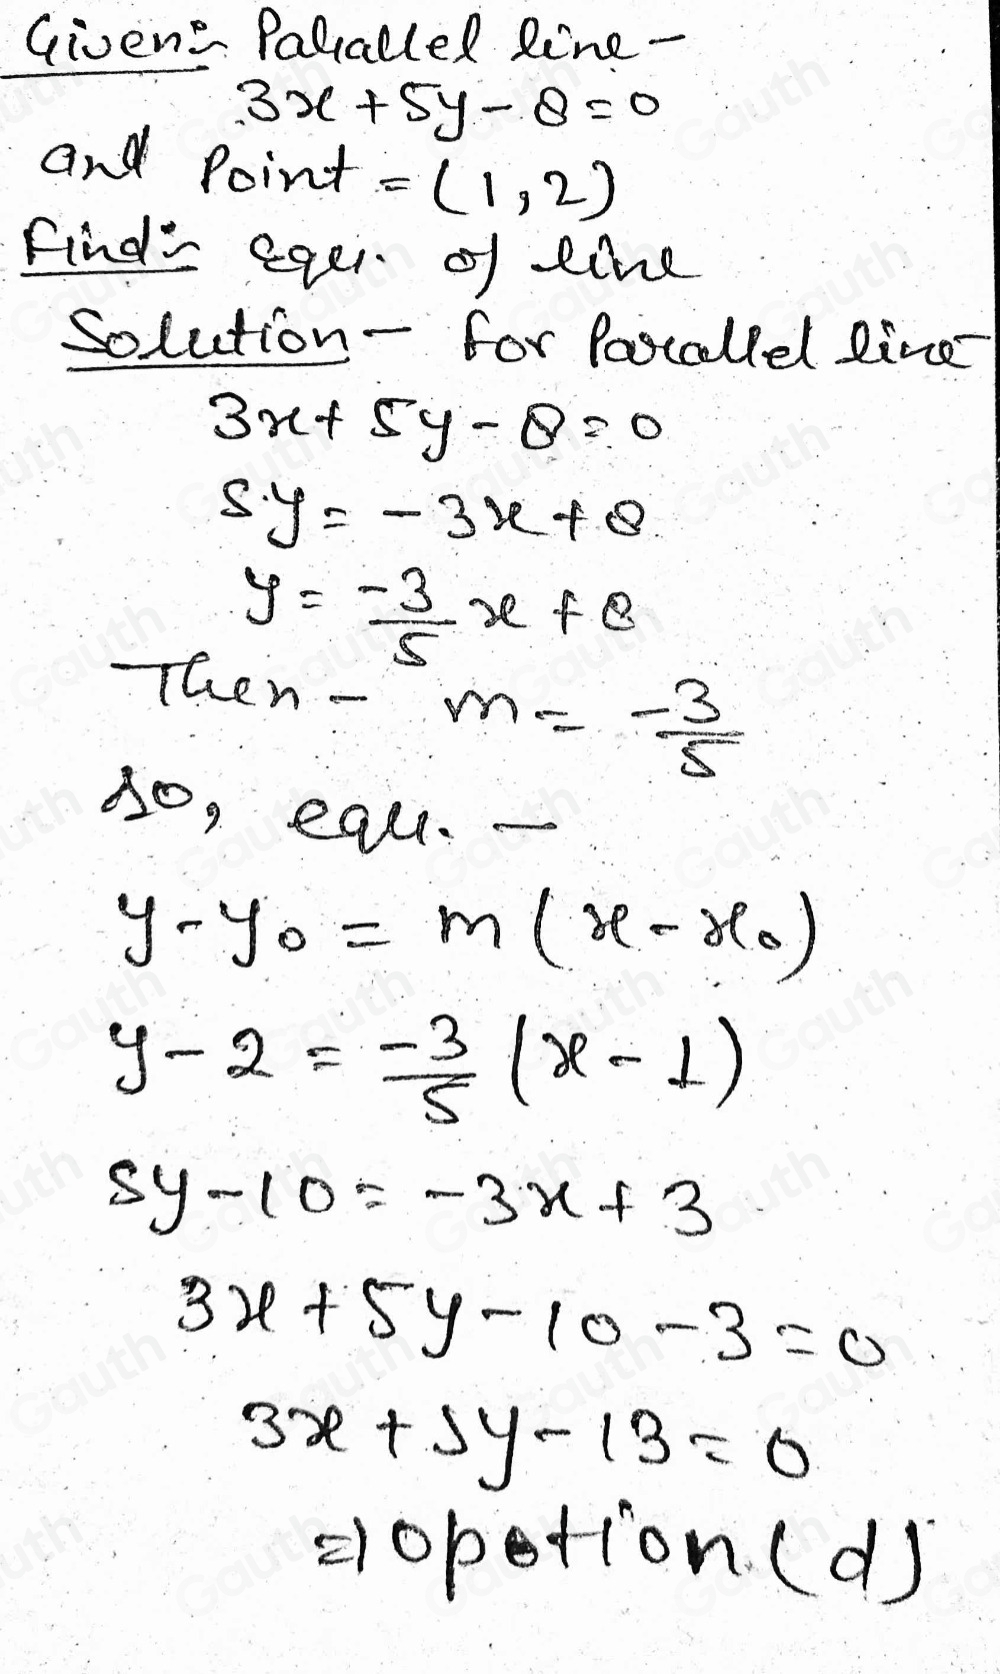 Given:- Parallel line -
3x + 5y - 8 = 0
and Point = (1, 2)
Find:- equ. of line
Solution - for Parallel line -
3x + 5y - 8 = 0
5y = -3x + 8
y = -3/5 x + 8
Then - m = -3/5
so, equ. -
y - y₀ = m (x - x₀)
y - 2 = -3/5 (x - 1)
5y - 10 = -3x + 3
3x + 5y - 10 - 3 = 0
3x + 5y - 13 = 0
⇒ opotion (d)